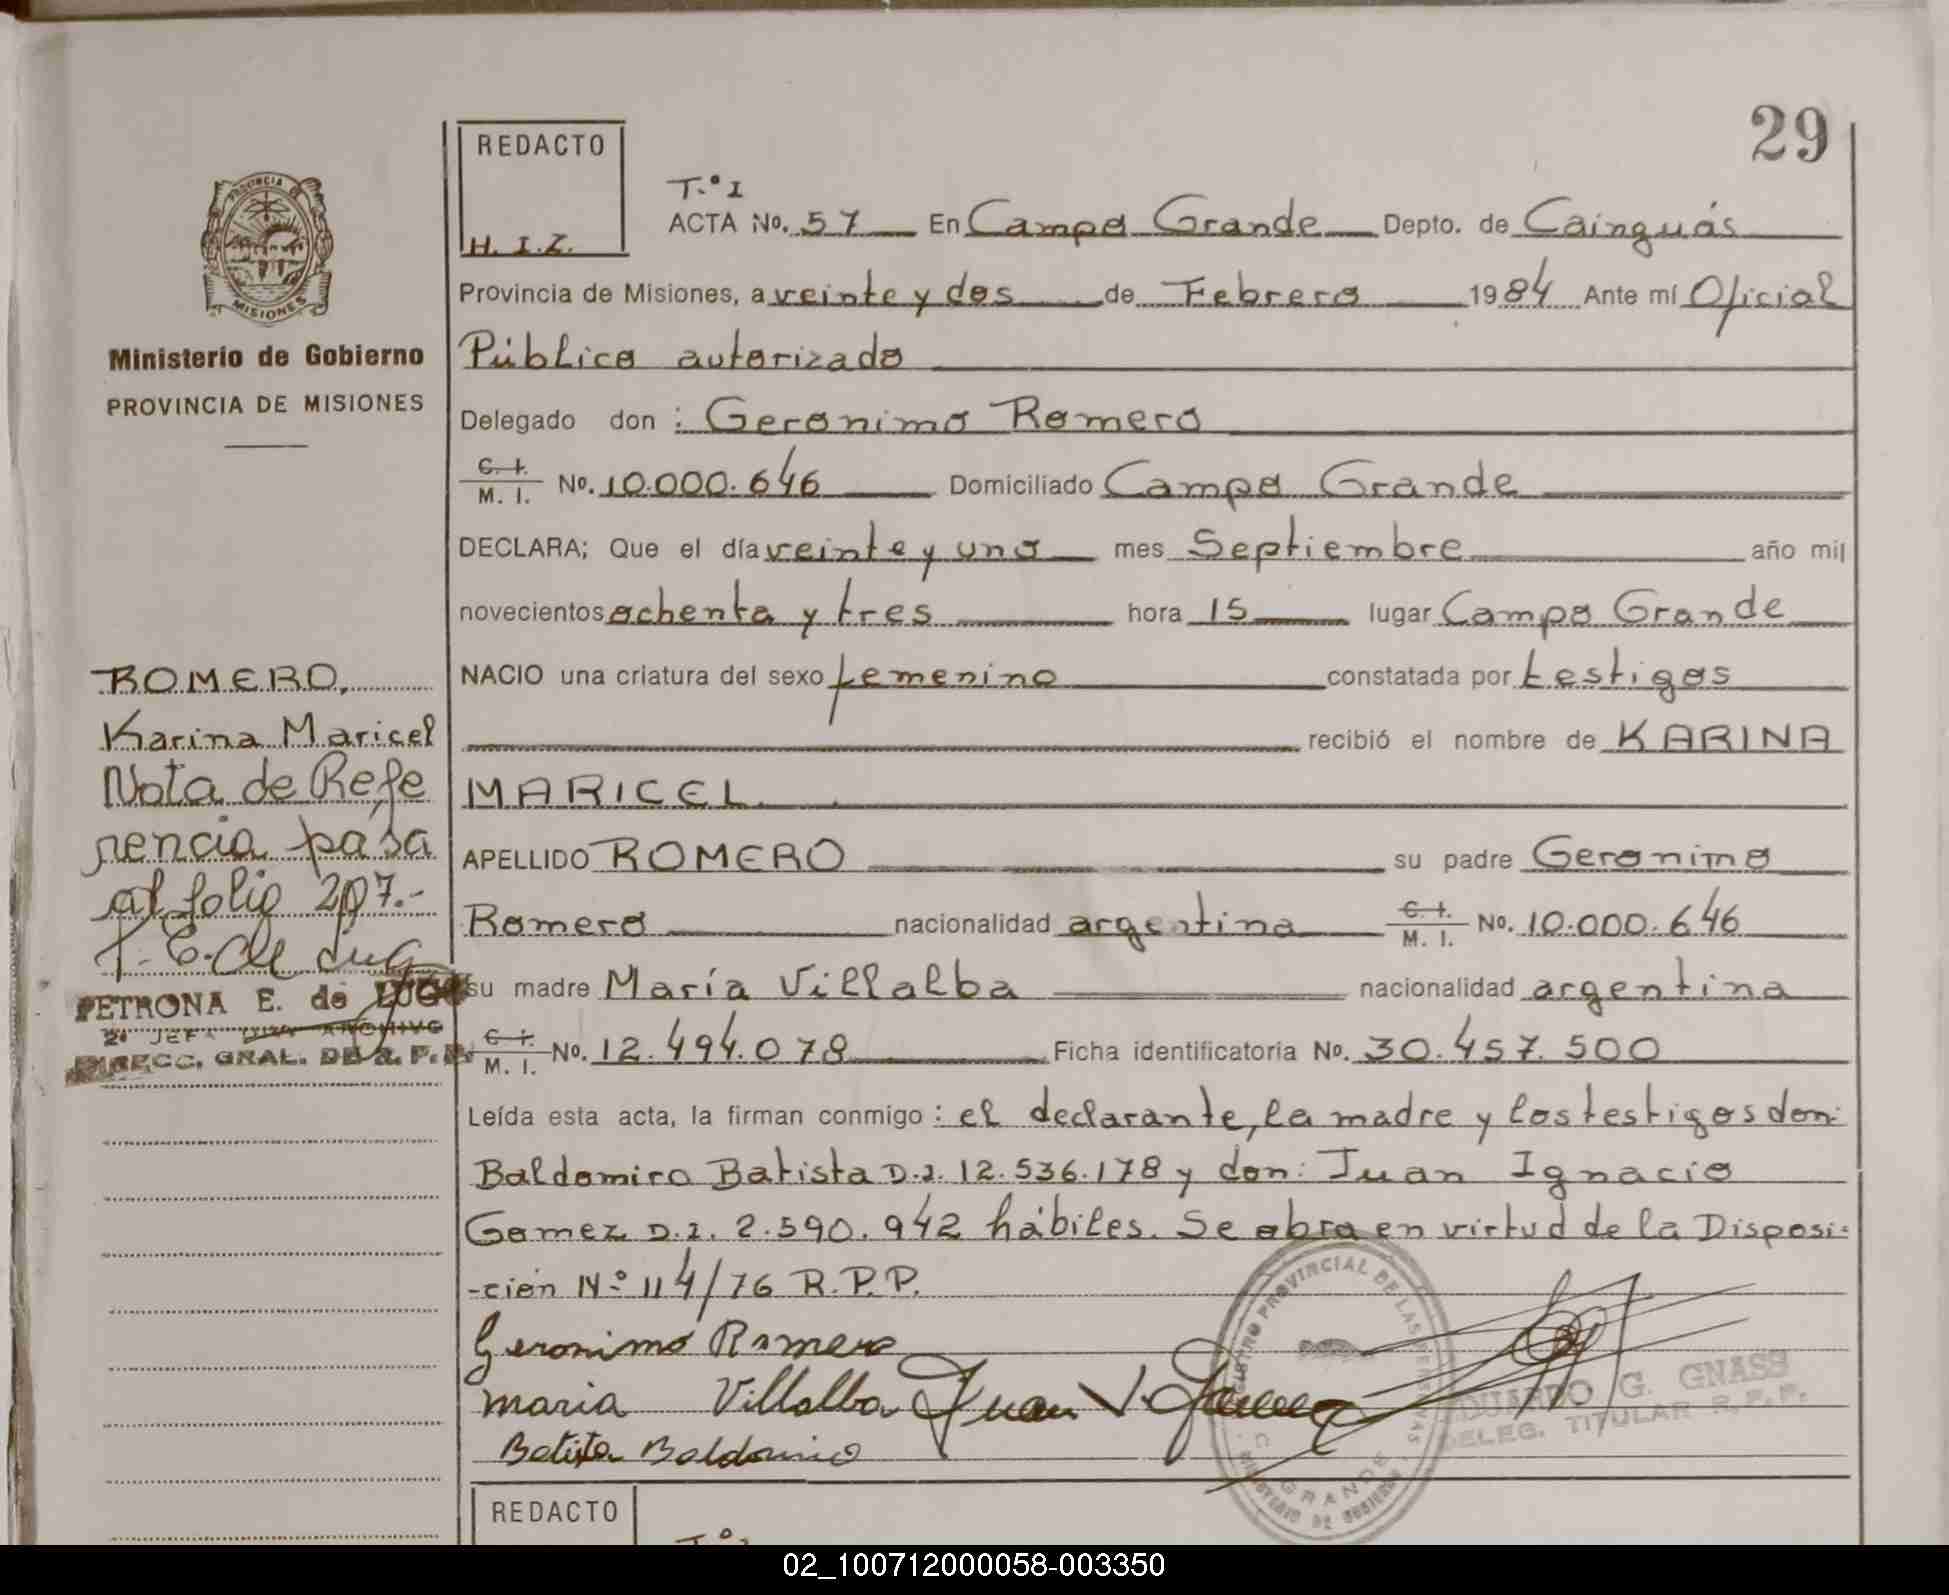 29
REDACTO
H. I. Z.
T.º I
ACTA No. 57 En Campo Grande Depto. de Cainguás
Provincia de Misiones, a veinte y dos de Febrero 1984 Ante mí Oficial
Público autorizado
Delegado don : Geronimo Romero
C. I.
M. I. No. 10.000.646 Domiciliado Campo Grande
DECLARA; Que el día veinte y uno mes Septiembre año mil
novecientos ochenta y tres hora 15 lugar Campo Grande
NACIO una criatura del sexo femenino constatada por testigos
recibió el nombre de KARINA
MARICEL
APELLIDO ROMERO su padre Geronimo
Romero nacionalidad argentina C. I. M. I. No. 10.000.646
su madre María Villalba nacionalidad argentina
C. I.
M. I. No. 12.494.078 Ficha identificatoria No. 30.457.500
Leída esta acta, la firman conmigo : el declarante, la madre y los testigos don:
Baldomiro Batista D.I. 12.536.178 y don: Juan Ignacio
Gomez D.I. 2.590.942 hábiles. Se obra en virtud de la Disposi-
-ción Nº 114/76 R.P.P.
Geronimo Romero
maria Villalba Juan I. Gomez
Batista Baldomiro
REGISTRO PROVINCIAL DE LAS PERSONAS
MINISTERIO DE GOBIERNO
C. GRANDE
EDUARDO G. GNASS
DELEG. TITULAR R.P.P.
PROVINCIA DE
MISIONES
Ministerio de Gobierno
PROVINCIA DE MISIONES
ROMERO,
Karina Maricel
Nota de Refe
rencia pasa
al folio 207.-
P. E. de Lugo
PETRONA E. de LUGO
2º JEFA DIV. ARCHIVO
DIRECC. GRAL. DE R. P. P.
REDACTO
T.º I
02_100712000058-003350